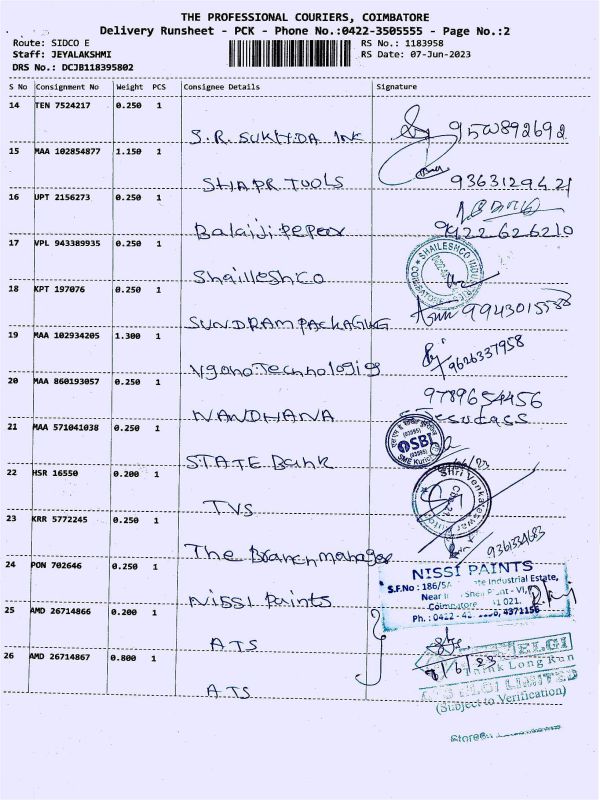 THE PROFESSIONAL COURIERS, COIMBATORE
Delivery Runsheet - PCK - Phone No.:0422-3505555 - Page No.:2
Route: SIDCO E
RS No.: 1183958
Staff: JEYALAKSHMI
RS Date: 07-Jun-2023
DRS No.: DCJB118395802
S No Consignment No Weight PCS Consignee Details Signature
14 TEN 7524217 0.250 1
S.R. SUKHDA INC 9500892692
15 MAA 102854877 1.150 1
SHAPR TOOLS 9363129421
16 UPT 2156273 0.250 1
Balaiji peper 9422626210
17 VPL 943389935 0.250 1
Shailleshco
SHAILESHCO
18 KPT 197076 0.250 1
SUNDRAM PACKAGING 9943015588
19 MAA 102934205 1.300 1
Technologies 9626337958
20 MAA 860193057 0.250 1
NANDHANA 9789654456
Jesudass
21 MAA 571041038 0.250 1
STATE Bank
SBI
(03095)
SME Kurichi
22 HSR 16550 0.200 1
TVS
Shri Venkateswar
23 KRR 5772245 0.250 1
The Branch manager 9361334683
24 PON 702646 0.250 1
NISSI Paints
NISSI PAINTS
S.F.No : 186/5A Industrial Estate,
Near
Coimbatore 021.
Ph. : 0422 - 4371156
25 AMD 26714866 0.200 1
ATS
26 AMD 26714867 0.800 1
ATS
ELGI
Think Long Run
ATS ELGI LIMITED
(Subject to Verification)